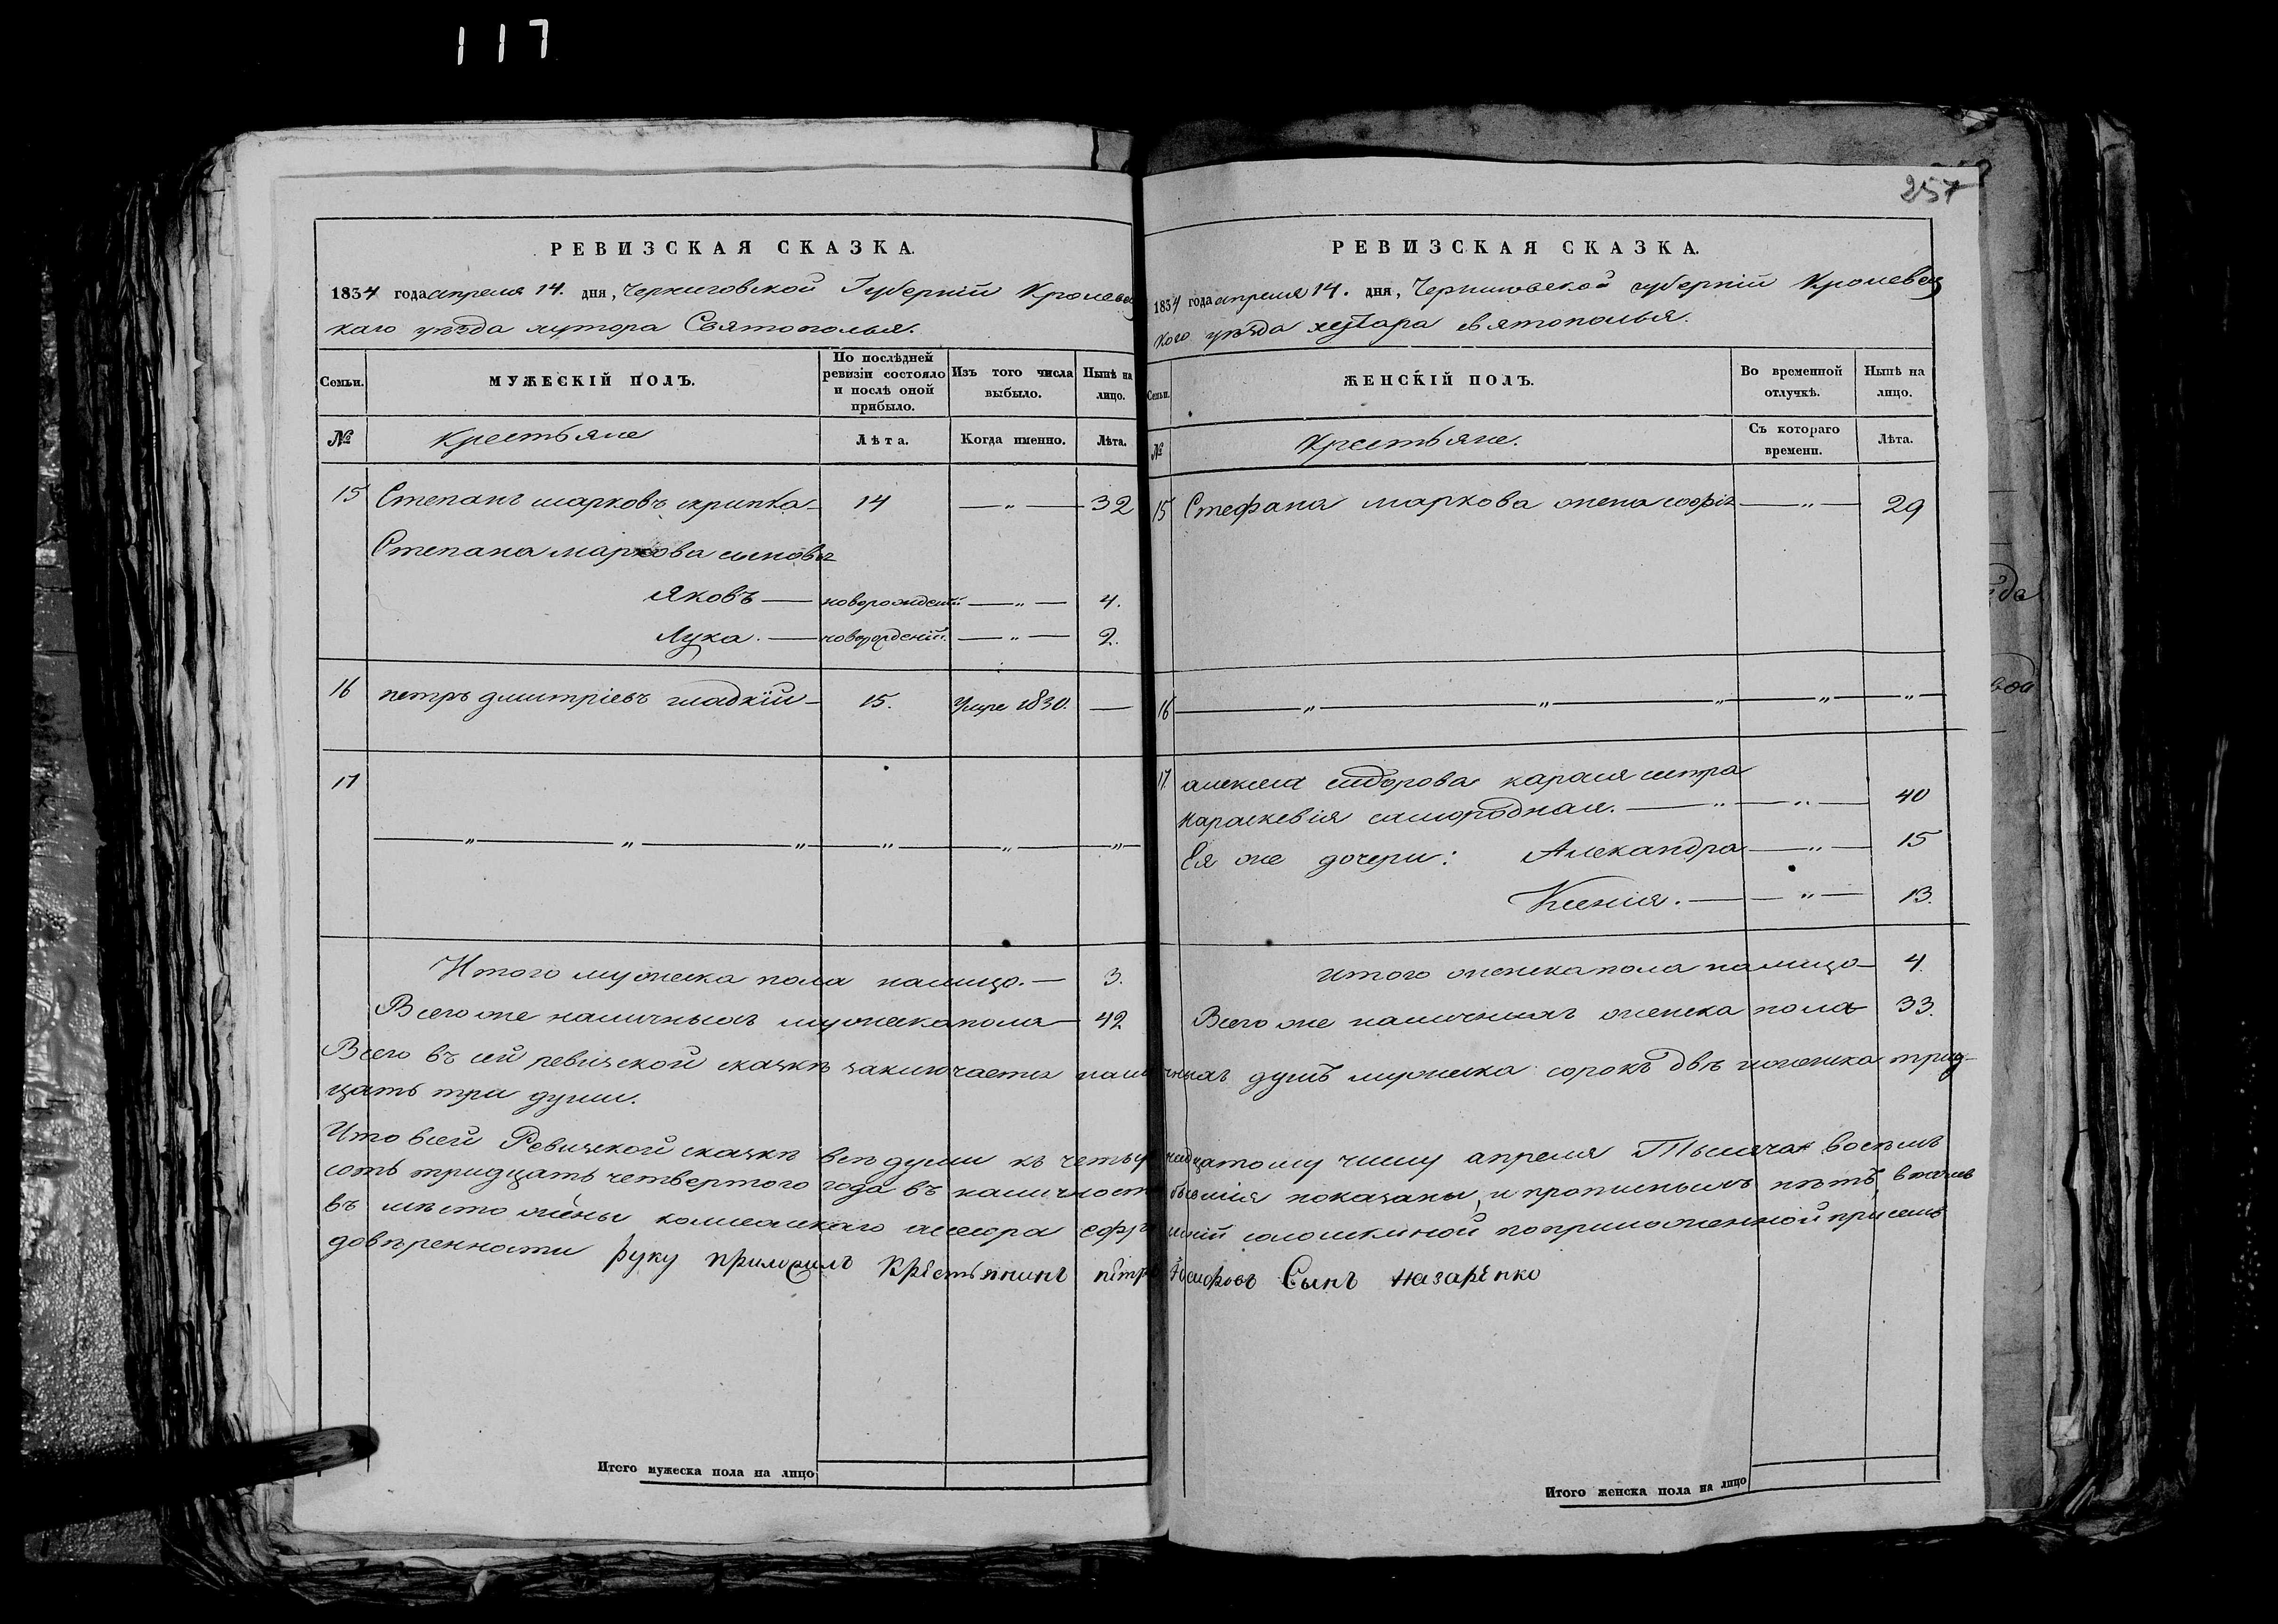 117
РЕВИЗСКАЯ СКАЗКА.
1834 года апреля 14. дня, Черниговской Губерніи Кролевец
каго уѣзда хутора Святополья.
Семьи.
МУЖЕСКІЙ ПОЛЪ.
По послѣдней ревизіи состояло и послѣ оной прибыло.
Изъ того числа выбыло.
Нынѣ на лицо.
№
Крестьяне
Лѣта.
Когда именно.
Лѣта.
15 Степанъ марковъ скрипка 14 — " — 32
Степана маркова сыновья
Яковъ — новорожденій — " — 4.
Лука. — новорожденій. — " — 2.
16 петръ дмитріевъ гладкій — 15. Умре 1830. —
17 — " — " — " — " — " — " —
Итого мужеска пола налицо. — 3.
Всего же наличныхъ мужеска пола — 42
Итого мужеска пола на лицо
257
РЕВИЗСКАЯ СКАЗКА.
1834 года апреля 14. дня, Черниговской губерніи Кролевец
кого уѣзда хутара святополья.
Семьи.
ЖЕНСКІЙ ПОЛЪ.
Во временной отлучкѣ.
Нынѣ на лицо.
№
Крестьяне.
Съ котораго времени.
Лѣта.
15 Стефана маркова жена софія — " — 29
16 — " — " — " — " — " —
17. алексея сидорова карася сестра
параскевія самородная. — " — " — 40
Ея же дочери: Александра — " — 15
Ксенія. — " — 13.
итого женска пола налицо — 4.
Всего же наличныхъ женска пола 33.
Всего въ сей ревизской сказкѣ заключается наличныхъ душъ мужеска сорокъ двѣ и женска трид-
цать три души.
Что всей Ревизской сказкѣ всѣ души къ четырнадцатому числу апреля Тысяча восемъ
сотъ тридцать четвертого года въ наличности бывшія показаны, и прописныхъ нѣтъ, втомъ
въ мѣсто жены колежскаго асесора соломкиной поприложенной присемъ
довѣренности руку приложилъ Крестьянинъ пѣтръ Іосифовъ Сынъ Назаренко
Итого женска пола на лицо